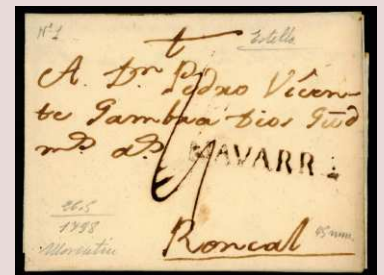 Nº 1
Estella
A. Dn Pedro Vicen-
te Gambra Dios Gûd
ms. as.
NAVARRA
Roncal
26-5
1798
Morentin
45 mm.